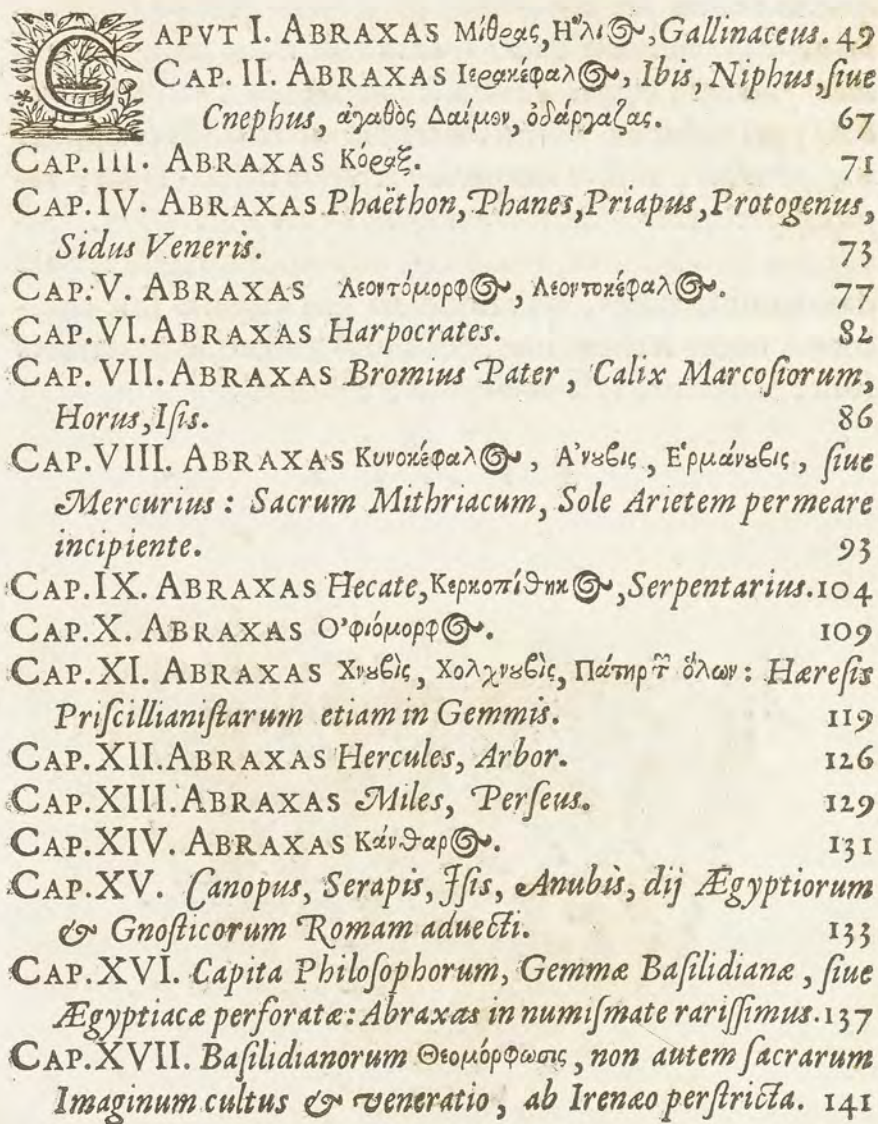 CAPVT I. ABRAXAS Μίθρας, Η῞λιος, Gallinaceus. 49
CAP. II. ABRAXAS Ιερακέφαλος, Ibis, Niphus, ſiue
Cnephus, ἀγαθὸς Δαίμον, ὀδάργαζας. 67
CAP. III. ABRAXAS Κόραξ. 71
CAP. IV. ABRAXAS Phaëthon, Phanes, Priapus, Protogenus,
Sidus Veneris. 73
CAP. V. ABRAXAS Λεοντόμορφος, Λεοντοκέφαλος. 77
CAP. VI. ABRAXAS Harpocrates. 82
CAP. VII. ABRAXAS Bromius Pater, Calix Marcoſiorum,
Horus, Iſis. 86
CAP. VIII. ABRAXAS Κυνοκέφαλος, Α᾽νȣϐις, Ε῾ρμάνȣϐις, ſiue
Mercurius: Sacrum Mithriacum, Sole Arietem permeare
incipiente. 93
CAP. IX. ABRAXAS Hecate, Κερκοπίθηκος, Serpentarius. 104
CAP. X. ABRAXAS Ο᾽φιόμορφος. 109
CAP. XI. ABRAXAS Χνȣϐὶς, Χολχνȣϐὶς, Πάτηρ τῶν ὅλων: Hæreſis
Priſcillianiſtarum etiam in Gemmis. 119
CAP. XII. ABRAXAS Hercules, Arbor. 126
CAP. XIII. ABRAXAS Miles, Perſeus. 129
CAP. XIV. ABRAXAS Κάνθαρος. 131
CAP. XV. Canopus, Serapis, Iſis, Anubis, dij Ægyptiorum
& Gnoſticorum Romam aduecti. 133
CAP. XVI. Capita Philoſophorum, Gemmæ Baſilidianæ, ſiue
Ægyptiacæ perforatæ: Abraxas in numiſmate rariſſimus. 137
CAP. XVII. Baſilidianorum Θεομόρφωσις, non autem ſacrarum
Imaginum cultus & veneratio, ab Irenæo perſtricta. 141